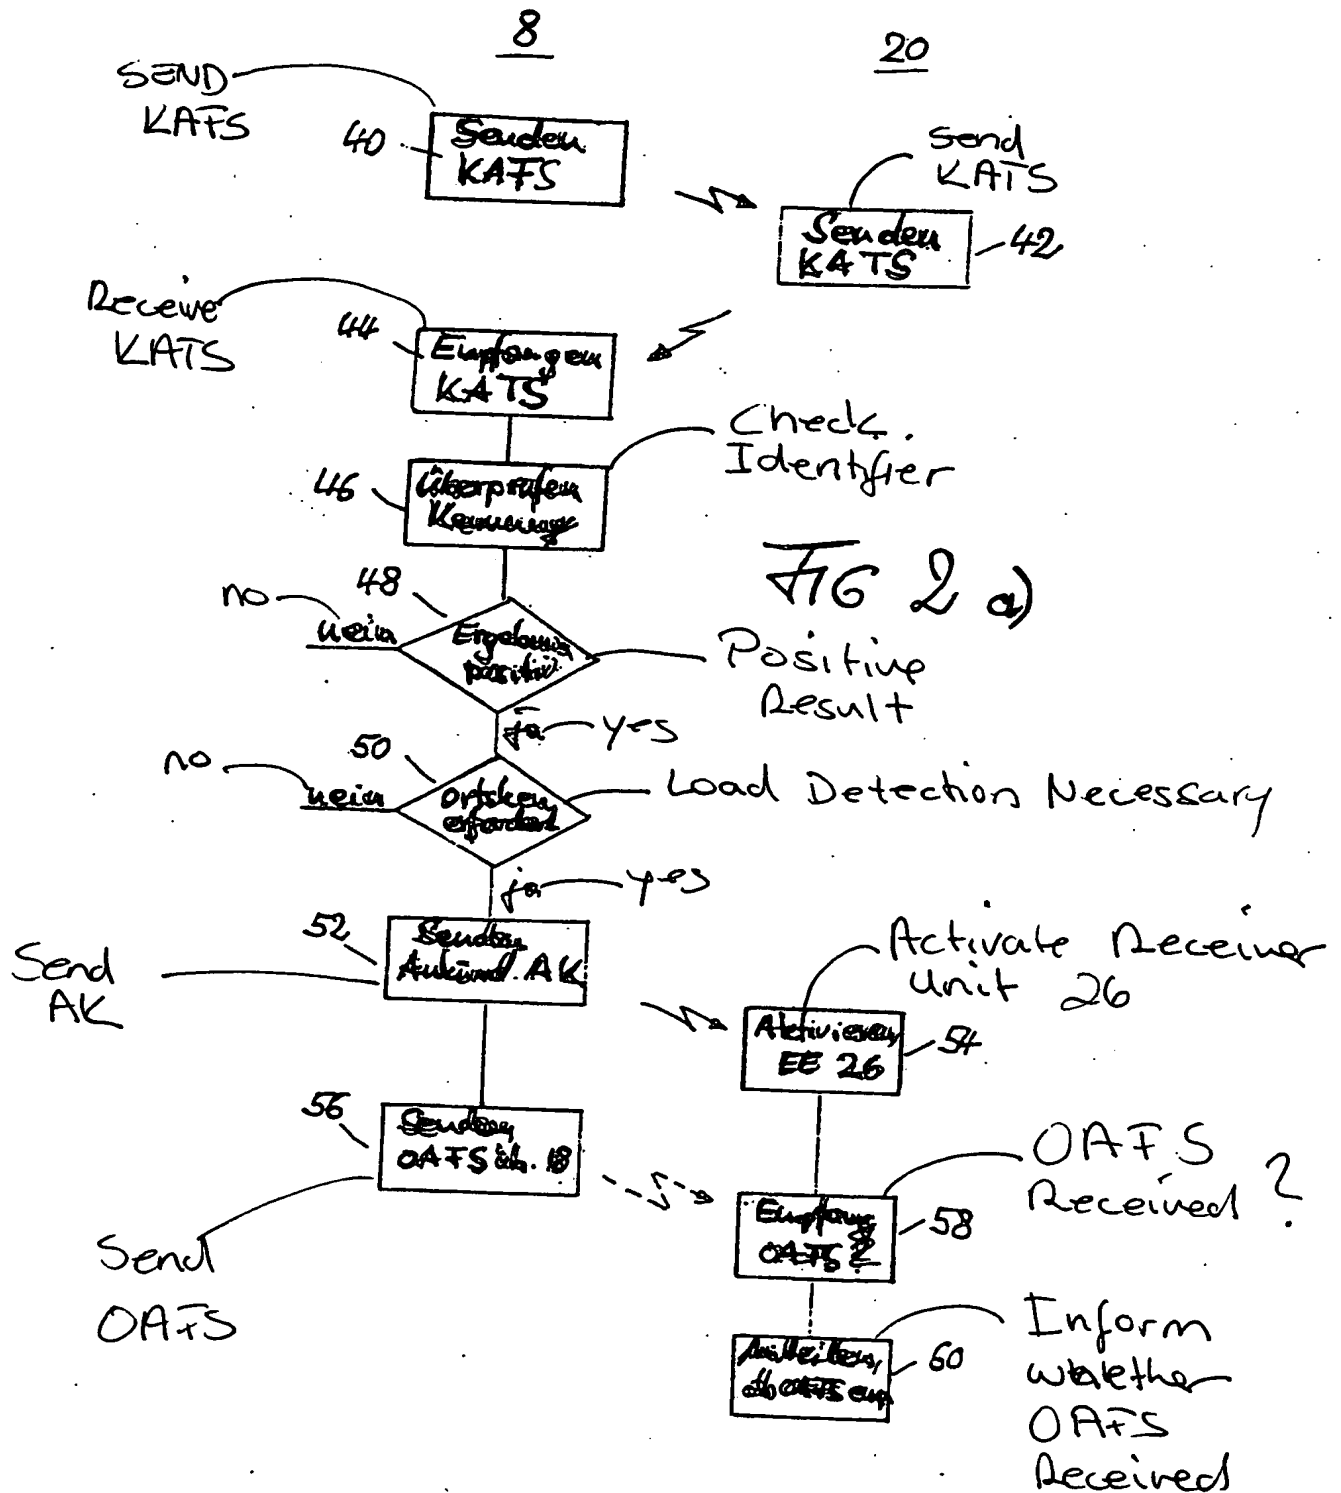 8
20
SEND
KAFS
40
Senden
KAFS
Send
KATS
Senden
KATS
42
Receive
KATS
44
Empfangen
KATS
Check
Identifier
46
Überprüfen
Kennung
FIG 2 a)
48
no
nein
Ergebnis
positiv?
Positive
Result
ja
yes
50
no
nein
Ortsken.
erforderl.
Load Detection Necessary
ja
yes
52
Send
AK
Senden
Ankünd. AK
Activate Receiver
Unit 26
Aktivieren
EE 26
54
56
Senden
OAFS üb. 18
Send
OAFS
OAFS
Received ?
Empfang
OAFS ?
58
Inform
whether
OAFS
Received
Mitteilen,
ob OAFS emp.
60